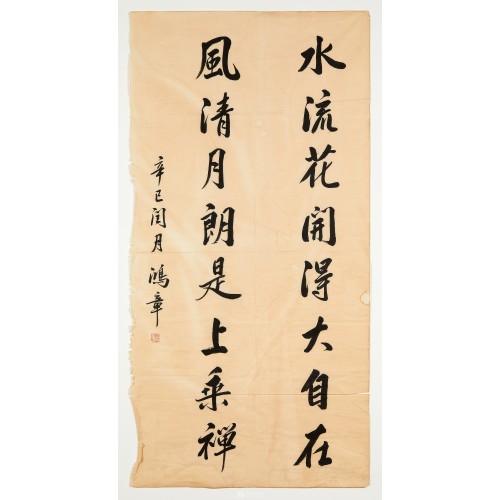 水流花開得大自在
風清月朗是上乘禅
辛巳閏月 鴻章